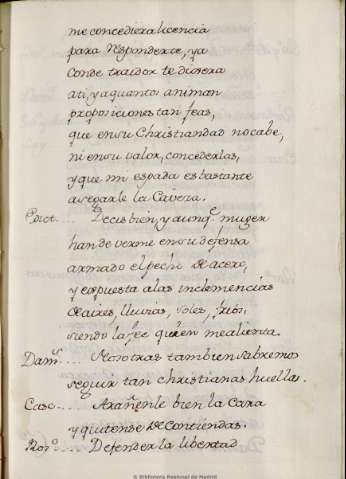 me concediera licencia
para responderte, ya
Conde traidor te diera
ati, y a quantos animan
proposiciones tan feas,
que en su Christiandad no cabe,
ni en su valor, concederlas,
y que mi espada es bastante
a segarle la Caveza.
Decis bien, y aunq.e muger
han de verme en su defensa
armado el pecho de acero,
y expuesta a las inclemencias
de aires, lluvias, soles, frios,
siendo la fee quien me alienta.
Dam.s .... Nosotras tambien sabremos
seguir tan christianas huellas.
Casc. .... Arañenle bien la Cara
y quitense de Contiendas.
Ror.o .... Defender la libertad
© Biblioteca Regional de Madrid